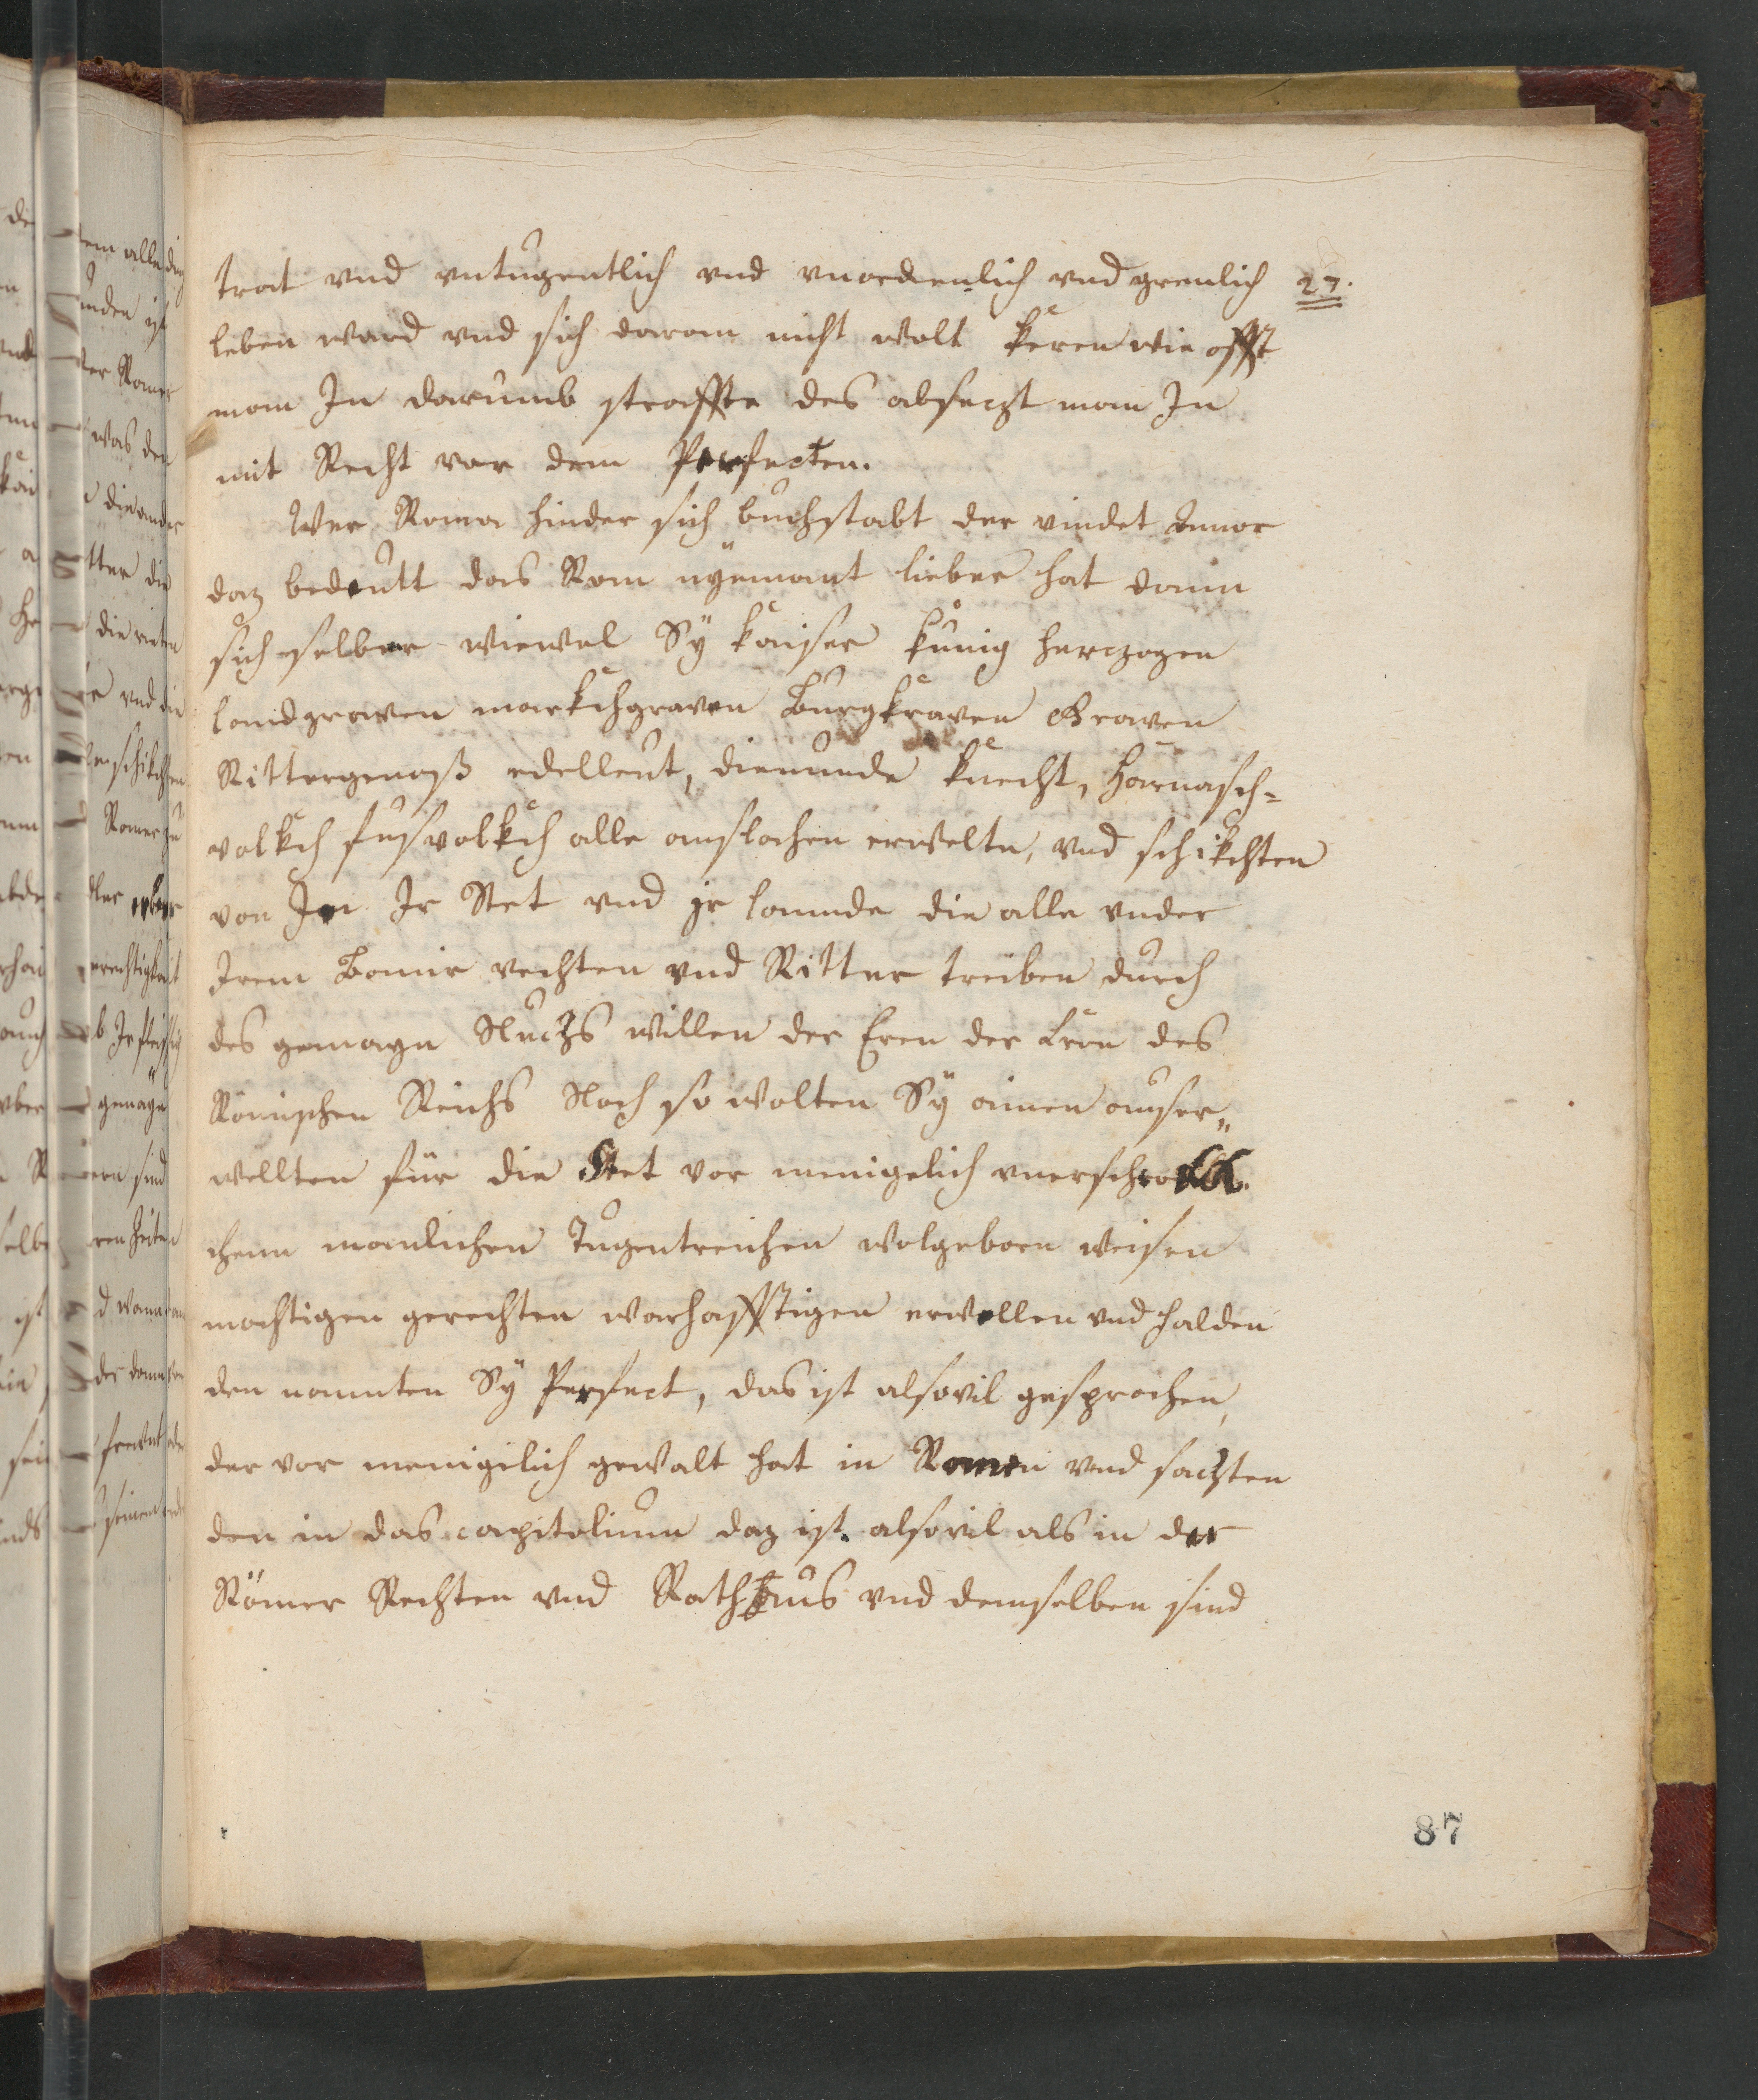 trat vnd vntugentlich vnd vnordenlich vnd greulich 27.
leben ward vnd sich daran nicht wolt keren wie offt
man In darumb straffte des absaczt man In
mit Recht vor dem Perfecten.
Wer Roma hinder sich buchstabt der vindet Amor
daz bedeutt das Rom nyemant lieber hat dann
sich selber wiewol Sÿ kaiser kunig herczogen
landgraven markchgraven Burgkraven Graven
Rittergenoß edelleut, diennde knecht, Harnasch-
volkch fusvolkch alle auslachen erwelte, vnd schikchten
von In Ir Stet vnd jr lannde die alle vnder
Irem Banir vechten vnd Ritter treiben durch
des gemayn Nuczs willen der Eren der Kron des
Römischen Reichs Noch so wolten Sÿ ainen ausser„
wellten für die Stet vor menigelich vnerschrockh.
chenn manlichen Tugentreichen wolgeborn weisen
machtigen gerechten warhafftigen erwellen vnd halden
den nannten Sÿ Perfect, das ist alsovil gesprochen,
der vor menigilich gewalt hat in Romen vnd saczten
den in das capitolium daz ist. alsovil als in der
Römer Rechten vnd Rathhaus vnd demselben sind
87